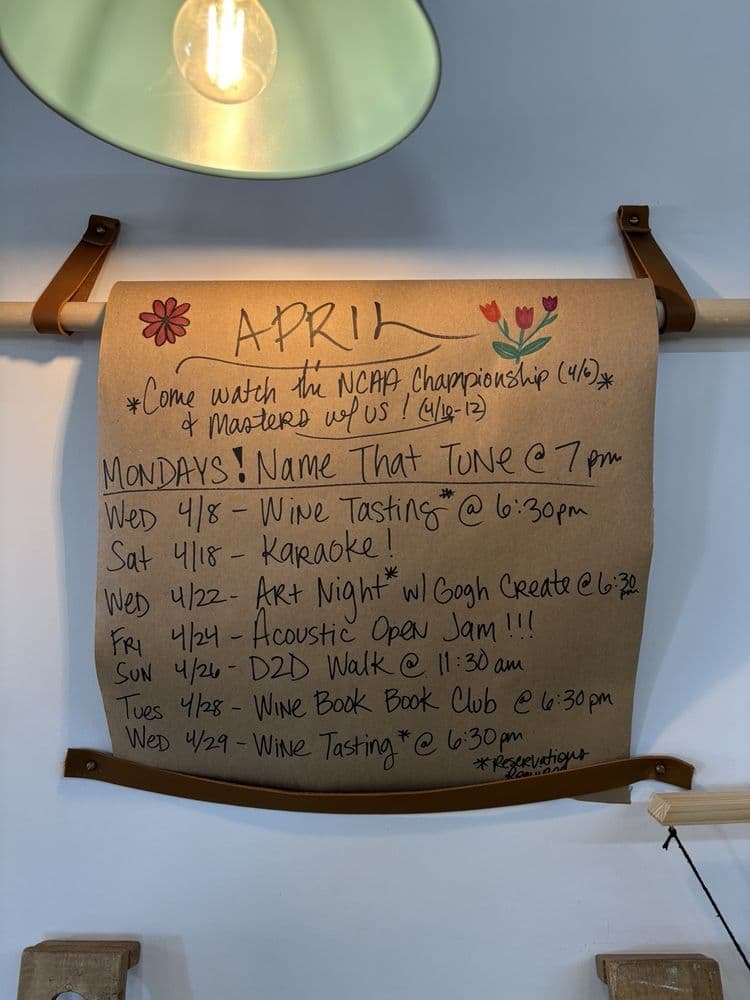 APRIL
*Come watch the NCAA Championship (4/6)*
& Masters w/ us! (4/10-12)
MONDAYS! Name That Tune @ 7pm
Wed 4/8 - Wine Tasting* @ 6:30pm
Sat 4/18 - Karaoke!
Wed 4/22 - Art Night* w/ Gogh Create @ 6:30pm
Fri 4/24 - Acoustic Open Jam!!!
Sun 4/26 - D2D Walk @ 11:30 am
Tues 4/28 - Wine Book Book Club @ 6:30pm
Wed 4/29 - Wine Tasting* @ 6:30pm
*Reservations
Required